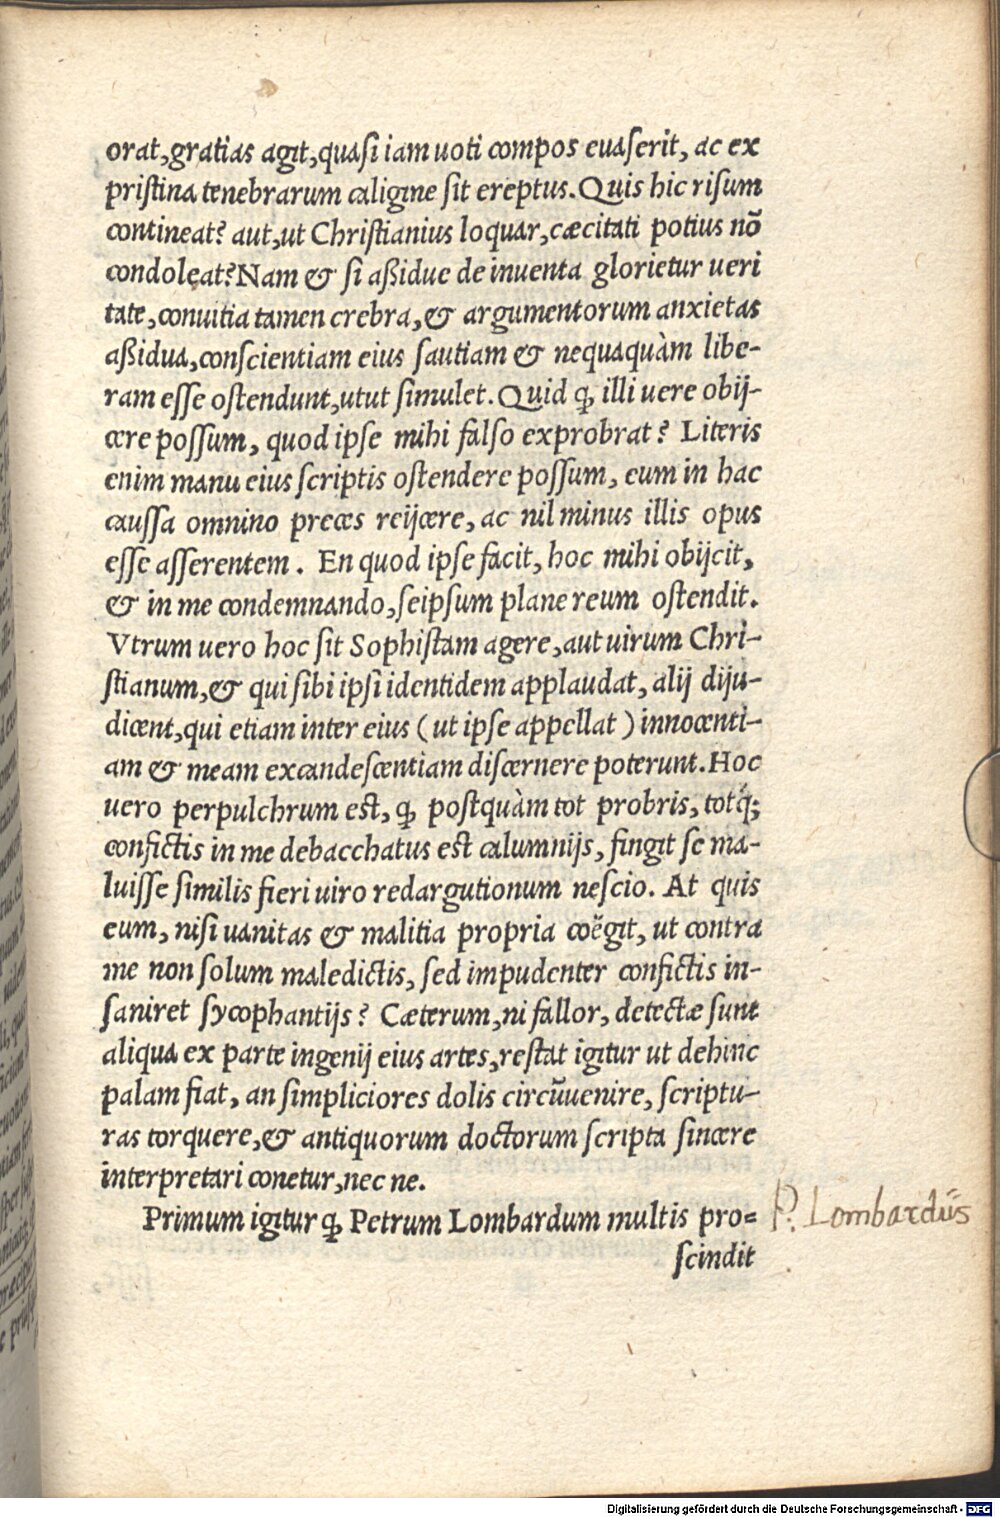 orat,gratias agit,quasi iam uoti compos euaserit, ac ex
pristina tenebrarum caligine sit ereptus. Quis hic risum
contineat? aut,ut Christianius loquar,cæcitati potius nō
condoleat? Nam & si aßidue de inuenta glorietur ueri
tate,conuitia tamen crebra,& argumentorum anxietas
aßidua,conscientiam eius sautiam & nequaquàm libe-
ram esse ostendunt,utut simulet. Quid ꝙ illi uere obij-
cere possum, quod ipse mihi falso exprobrat? Literis
enim manu eius scriptis ostendere possum, eum in hac
caussa omnino preces reijcere, ac nil minus illis opus
esse asserentem. En quod ipse facit, hoc mihi obijcit,
& in me condemnando,seipsum plane reum ostendit.
Vtrum uero hoc sit Sophistam agere,aut uirum Chri-
stianum,& qui sibi ipsi identidem applaudat, alij diju-
dicent,qui etiam inter eius ( ut ipse appellat ) innocenti-
am & meam excandescentiam discernere poterunt. Hoc
uero perpulchrum est, ꝙ postquàm tot probris, totq́;
confictis in me debacchatus est calumnijs, fingit se ma-
luisse similis fieri uiro redargutionum nescio. At quis
eum, nisi uanitas & malitia propria coëgit, ut contra
me non solum maledictis, sed impudenter confictis in-
saniret sycophantijs? Cæterum,ni fallor, detectæ sunt
aliqua ex parte ingenij eius artes,restat igitur ut dehinc
palam fiat, an simpliciores dolis circūuenire, scriptu-
ras torquere,& antiquorum doctorum scripta sincere
interpretari conetur,nec ne.
Primum igitur ꝙ Petrum Lombardum multis pro=
P. Lombardus
scindit
Digitalisierung gefördert durch die Deutsche Forschungsgemeinschaft - DFG